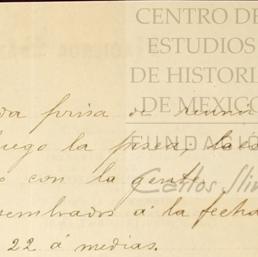 CENTRO DE
ESTUDIOS
DE HISTORIA
DE MEXICO
FUNDACIÓN
Carlos Slim
prisa de reunir
luego la
con la gente
sembrados á la fecha
22 á medias.